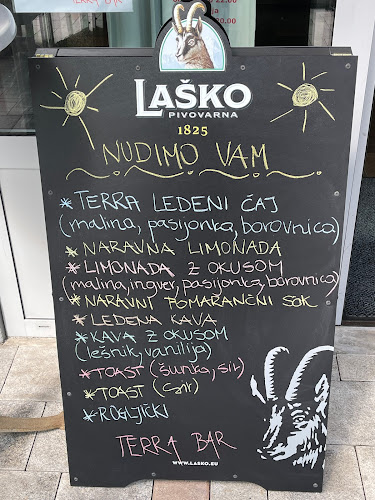 TERRA BAR
22.00
20.00
LAŠKO
PIVOVARNA
1825
NUDIMO VAM
* TERRA LEDENI ČAJ
(malina, pasijonka, borovnica)
* NARAVNA LIMONADA
* LIMONADA Z OKUSOM
(malina, ingver, pasijonka, borovnica)
* NARAVNI POMARANČNI SOK
* LEDENA KAVA
* KAVA Z OKUSOM
(lešnik, vanilija)
* TOAST (šunka, sir)
* TOAST (sir)
* ROGLJIČKI
TERRA BAR
WWW.LASKO.EU